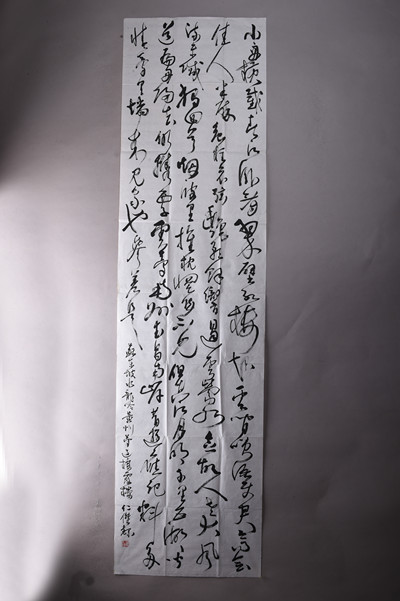 小舟横截春江卧看翠壁红楼起云间笑语使君高会
佳人半醉危柱哀弦艳歌余响绕云萦水念故人老大风
流未减独回首烟波里推枕惘然不见但空江月明千里五湖闻
道扁舟归去仍携西子云梦南州武昌南岸昔游应记料多
情梦里端来见我也参差是
苏东坡水龙吟黄州梦过栖霞楼 仁杰书